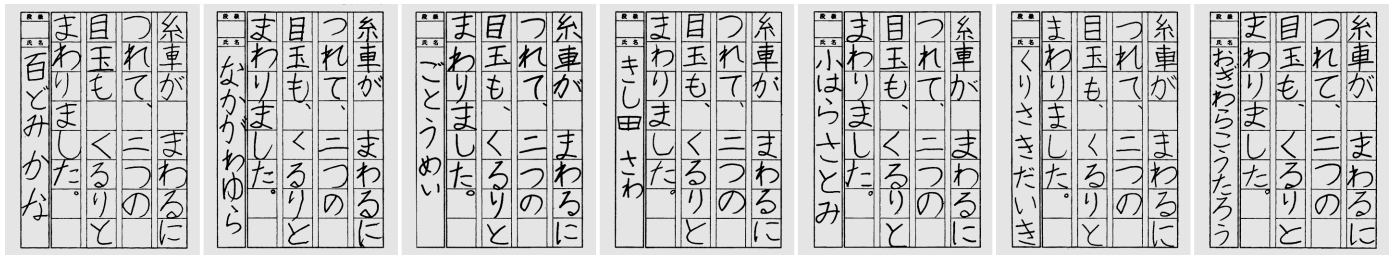 糸車が まわるに
つれて、二つの
目玉も くるりと
まわりました。
段級
氏名 百どみかな
糸車が まわるに
つれて、二つの
目玉も、くるりと
まわりました。
段級
氏名 なかがわゆら
糸車が まわるに
つれて、二つの
目玉も、くるりと
まわりました。
段級
氏名 ごとうめい
糸車が まわるに
つれて、二つの
目玉も、くるりと
まわりました。
段級
氏名 きし田 さわ
糸車が まわるに
つれて、二つの
目玉も、くるりと
まわりました。
段級
氏名 小はらさとみ
糸車が まわるに
つれて、二つの
目玉も、くるりと
まわりました。
段級
氏名 くりさきだいき
糸車が まわるに
つれて、二つの
目玉も、くるりと
まわりました。
段級
氏名 おぎわらこうたろう